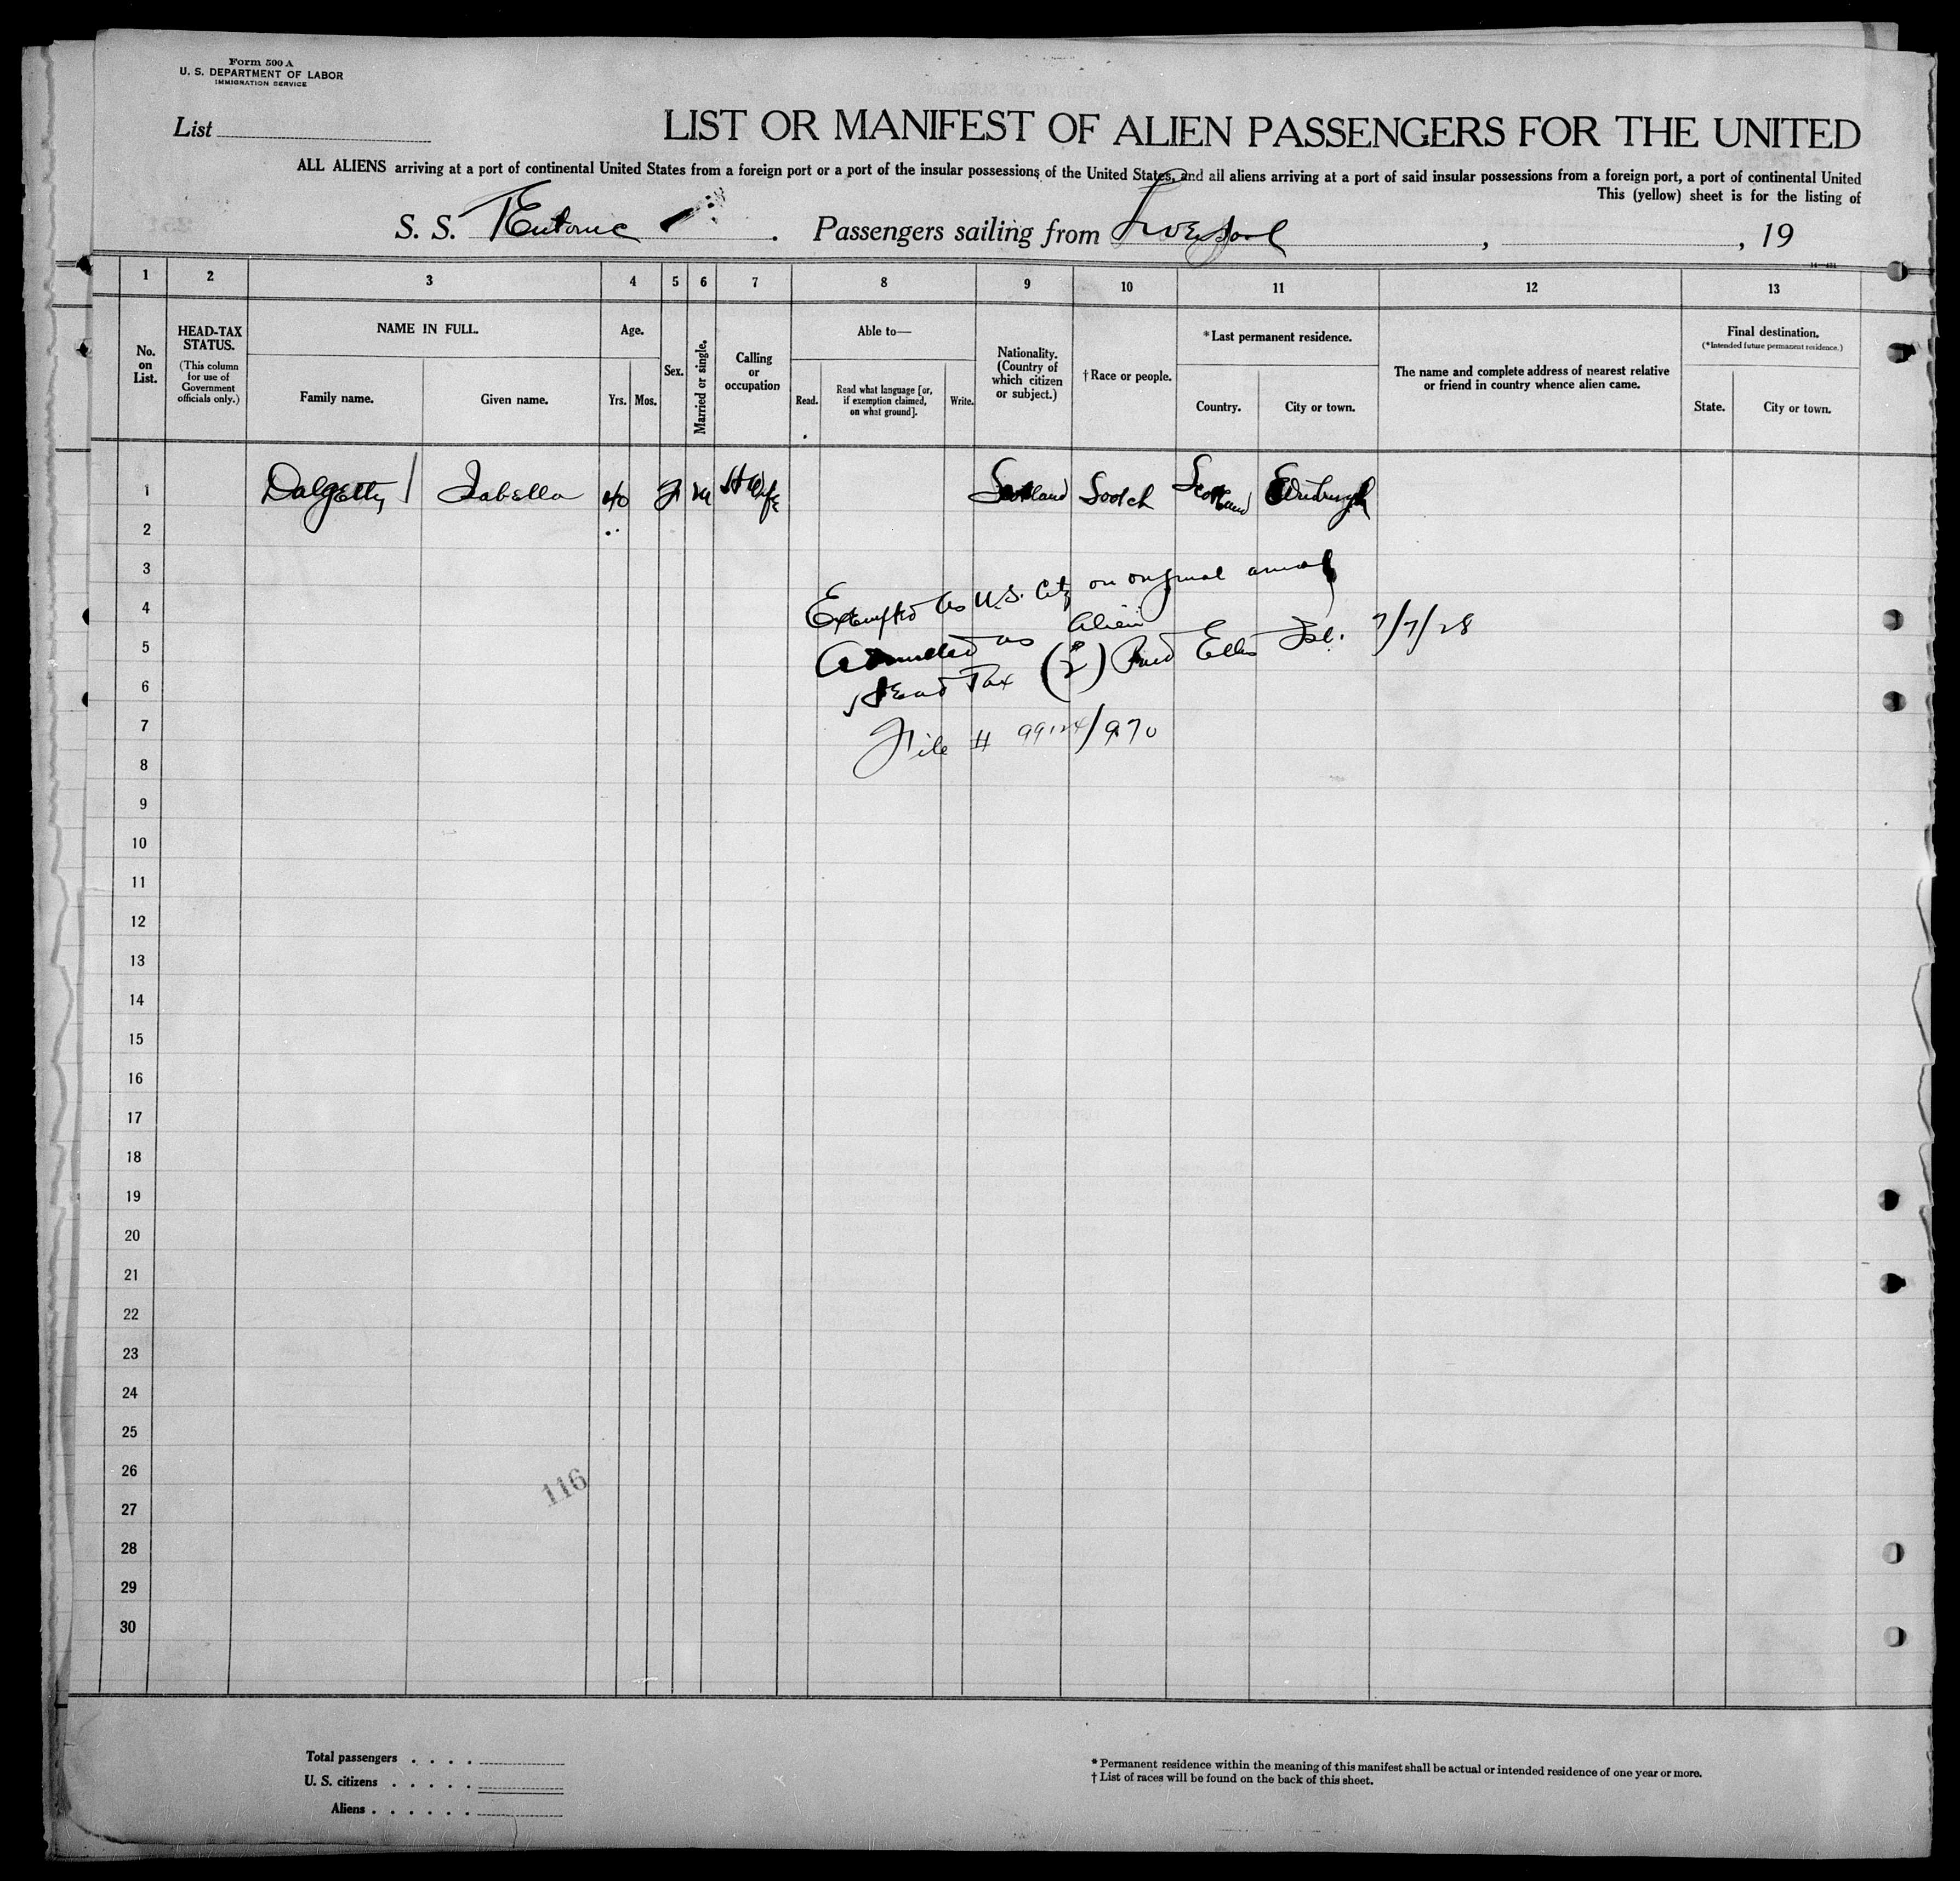 Form 500 A
U. S. DEPARTMENT OF LABOR
IMMIGRATION SERVICE
List
LIST OR MANIFEST OF ALIEN PASSENGERS FOR THE UNITED
ALL ALIENS arriving at a port of continental United States from a foreign port or a port of the insular possessions of the United States, and all aliens arriving at a port of said insular possessions from a foreign port, a port of continental United
This (yellow) sheet is for the listing of
S. S. TEutonic . Passengers sailing from Liverpool , , 19
1 2 3 4 5 6 7 8 9 10 11 12 13
No. on List.
HEAD-TAX STATUS.
(This column for use of Government officials only.)
NAME IN FULL.
Family name.
Given name.
Age.
Yrs.
Mos.
Sex.
Married or single.
Calling or occupation
Able to—
Read.
Read what language [or, if exemption claimed, on what ground].
Write.
Nationality. (Country of which citizen or subject.)
†Race or people.
*Last permanent residence.
Country.
City or town.
The name and complete address of nearest relative or friend in country whence alien came.
Final destination.
(*Intended future permanent residence.)
State.
City or town.
1 Dalgetty Isabella 40 F M HWife Scotland Scotch Scotland Edinburgh
2
3
Exempted as U.S. Citz on original arrival
4
Admitted as Alien
5
Head Tax ($2) Paid Ellis Isl. 7/7/28
6
7
File # 99124/970
8
9
10
11
12
13
14
15
16
17
18
19
20
21
22
23
24
25
26
116
27
28
29
30
Total passengers . . . .
U. S. citizens . . . . .
Aliens . . . . . .
* Permanent residence within the meaning of this manifest shall be actual or intended residence of one year or more.
† List of races will be found on the back of this sheet.